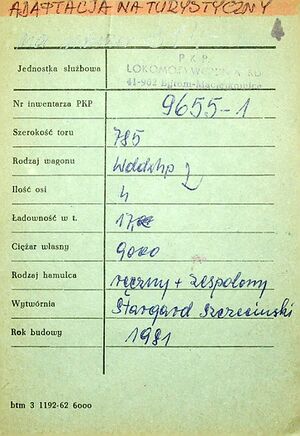 ADAPTACJA NA TURYSTYCZNY
Jednostka służbowa P K P
LOKOMOTYWOWNIA
41-902 Bytom
Nr inwentarza PKP 9655-1
Szerokość toru 785
Rodzaj wagonu Wddxhp
Ilość osi 4
Ładowność w t.
Ciężar własny 9000
Rodzaj hamulca ręczny + zespolony
Wytwórnia Stargard Szczeciński
Rok budowy 1981
btm 3 1192-62 6000